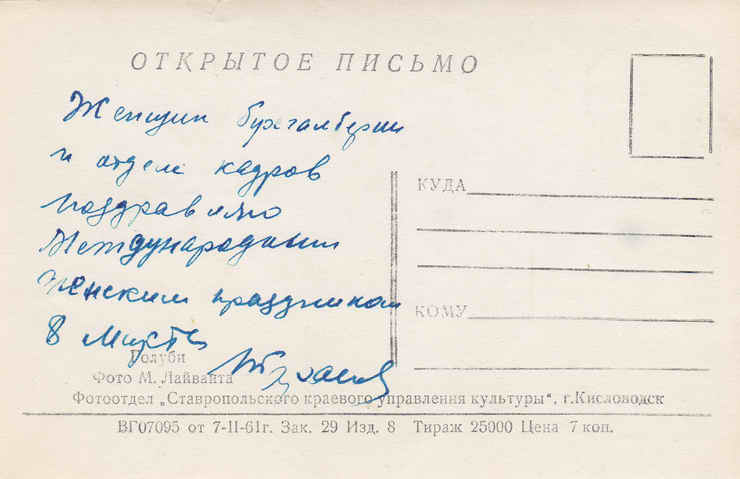 ОТКРЫТОЕ ПИСЬМО
Женщин бухгалтерии
и отдела кадров
поздравляю
Международным
Женским праздником
8 Марта
КУДА
КОМУ
Голуби
Фото М. Лайванта
Фотоотдел „Ставропольского краевого управления культуры“, г.Кисловодск
ВГ07095 от 7-II-61г. Зак. 29 Изд. 8 Тираж 25000 Цена 7 коп.